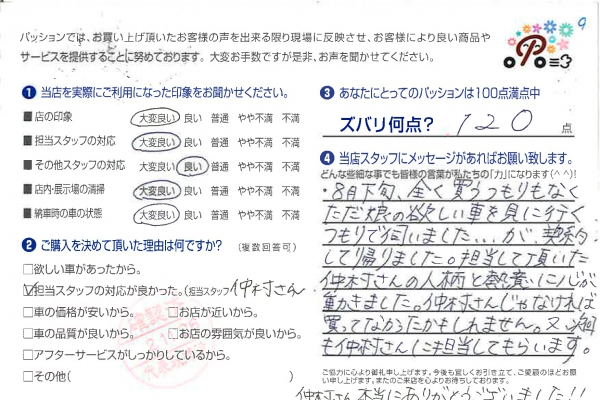 9
パッションでは、お買い上げ頂いたお客様の声を出来る限り現場に反映させ、お客様により良い商品や
サービスを提供することに努めております。大変お手数ですが是非、お声を聞かせてください。
❶ 当店を実際にご利用になった印象をお聞かせください。
■ 店の印象 大変良い 良い 普通 やや不満 不満
■ 担当スタッフの対応 大変良い 良い 普通 やや不満 不満
■ その他スタッフの対応 大変良い 良い 普通 やや不満 不満
■ 店内・展示場の清掃 大変良い 良い 普通 やや不満 不満
■ 納車時の車の状態 大変良い 良い 普通 やや不満 不満
❷ ご購入を決めて頂いた理由は何ですか? (複数回答可)
□欲しい車があったから。
☑担当スタッフの対応が良かった。(担当スタッフ 仲村さん
□車の価格が安いから。 □お店が近いから。
□車の品質が良いから。 □お店の雰囲気が良いから。
□アフターサービスがしっかりしているから。
□その他( )
❸ あなたにとってのパッションは100点満点中
ズバリ何点? 120 点
❹ 当店スタッフにメッセージがあればお願い致します。
どんな些細な事でも皆様の言葉が私たちの「力」になります(^^)!
・8月下旬、全く買うつもりもなく
ただ娘の欲しい車を見に行く
つもりで伺いました...が契約
して帰りました。担当して頂いた
仲村さんの人柄と熱意に心が
動かされました。仲村さんじゃなければ
買ってなかったかもしれません。又、次回
も仲村さんに担当してもらいます。
ご協力に心より御礼申し上げます。今後も宜しくお引き立て、ご愛顧のほどお願
い申し上げます。またのご来店を心よりお待ちしております。
仲村さん本当にありがとうございました!!